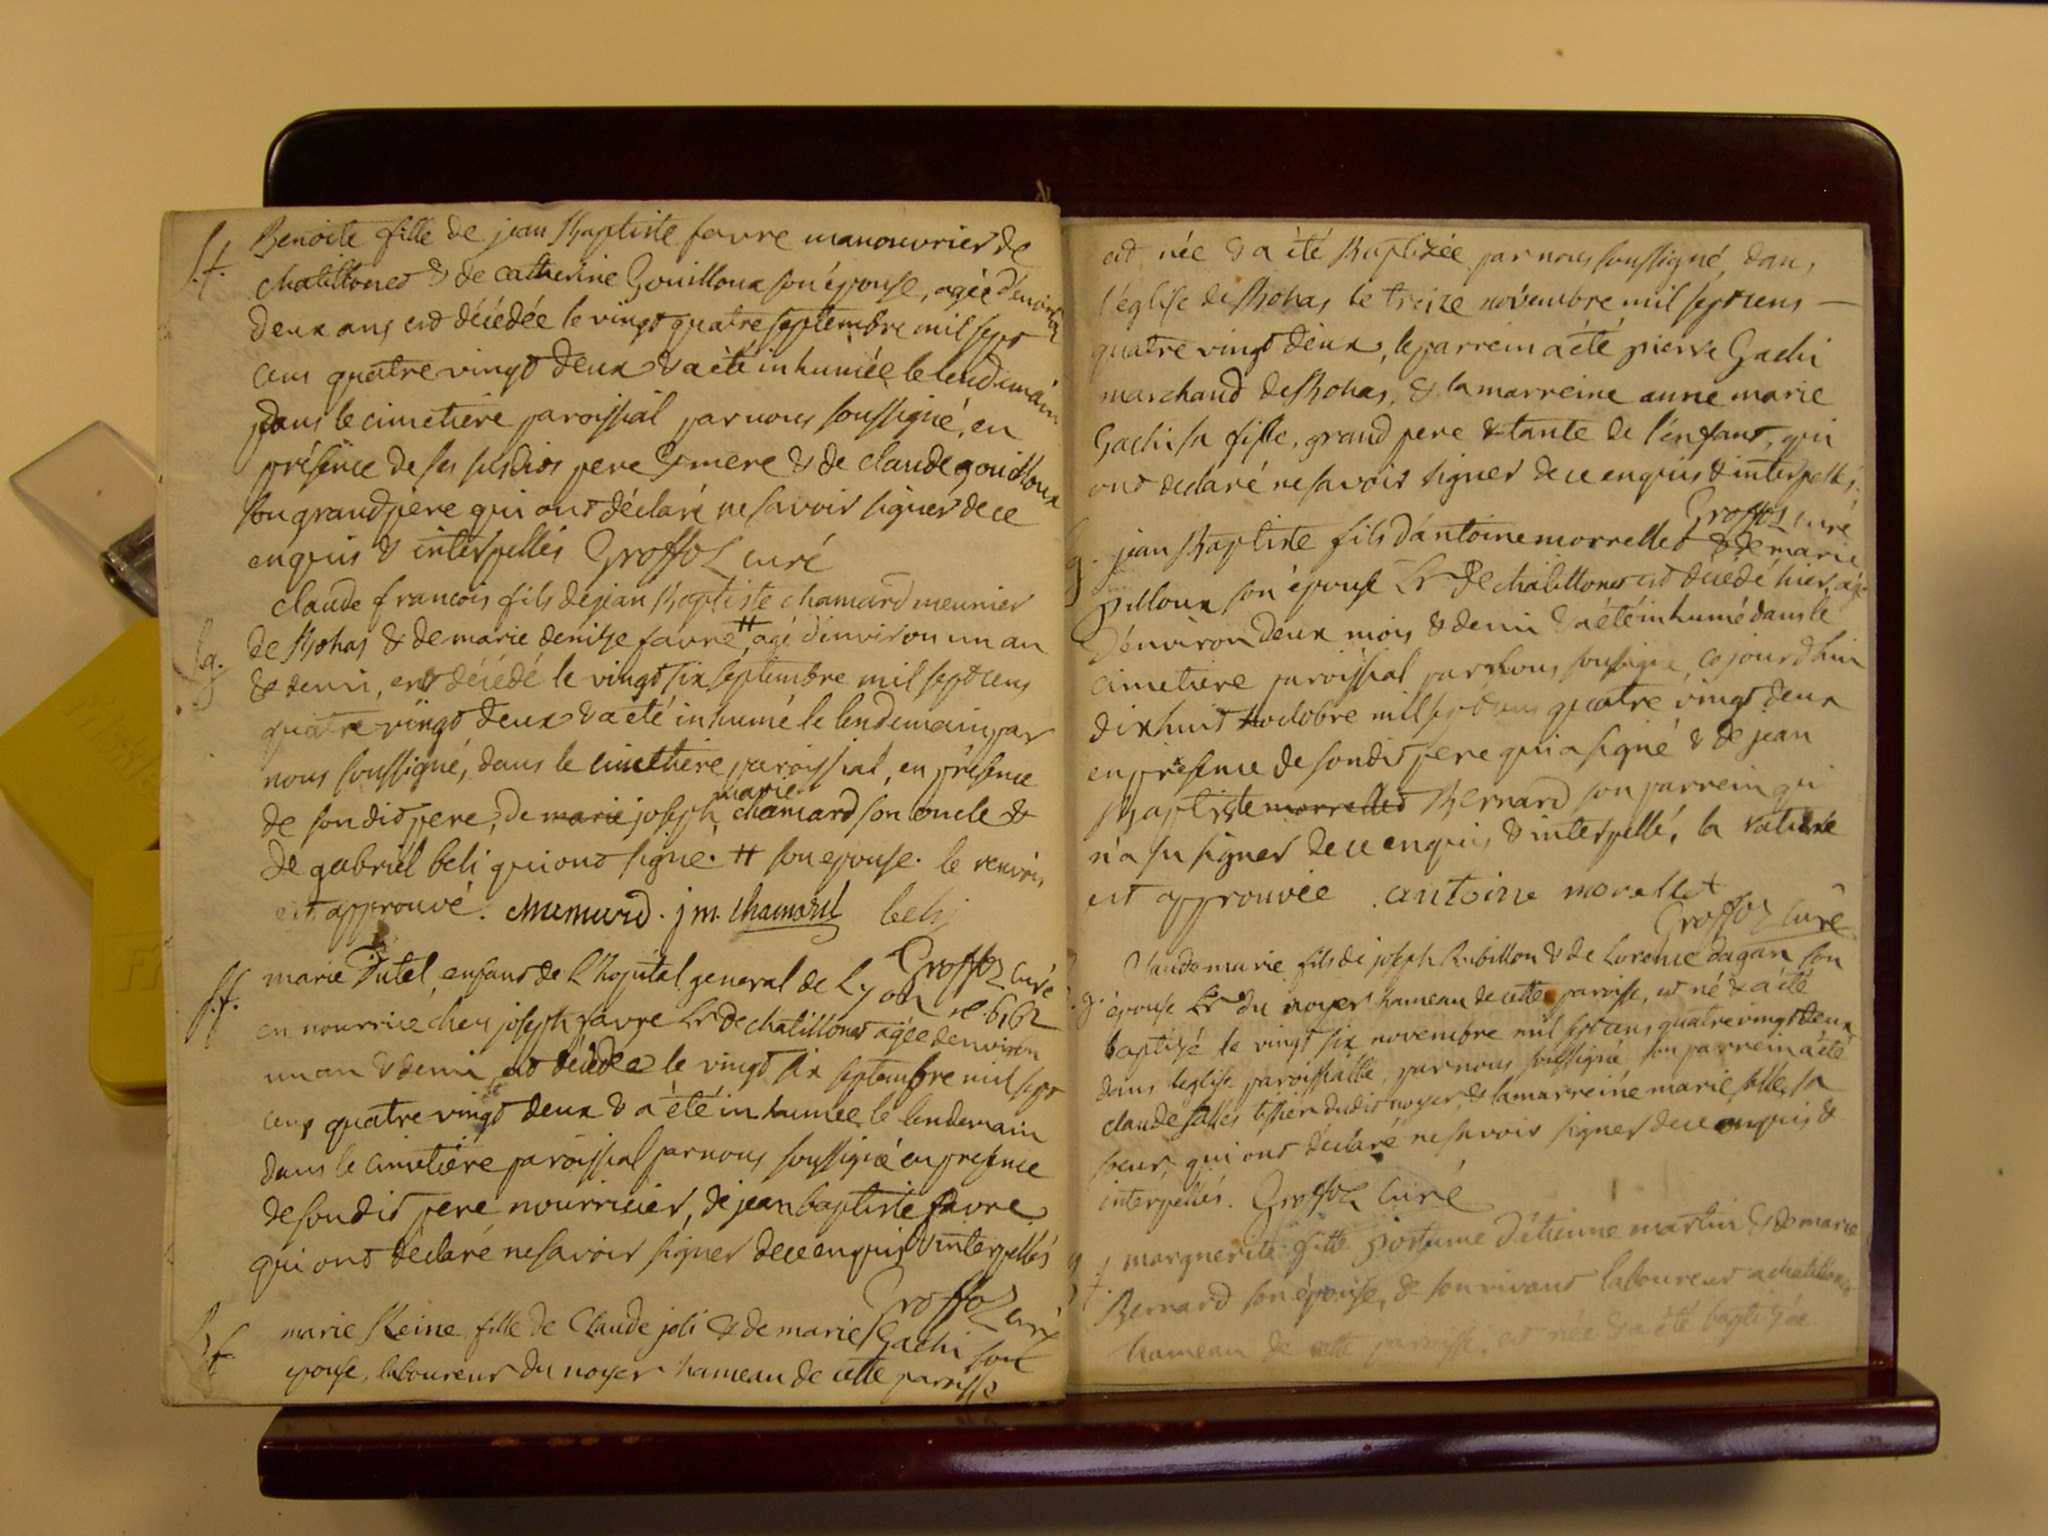 S.f.
Benoite fille de jean Baptiste favre manouvrier de
chatillonet & de catherine Gouilloux son épouse, agée d'environ
deux ans est décédée le vingt quatre septembre mil sept
cens quatre vingt deux & a été inhumée le lendemain
dans le cimetiere paroissial par nous soussigné, en
présence de ses susdits pere & mere & de claude gouilloux
son grand pere qui ont déclaré ne savoir signer de ce
enquis & interpellés Groffoz curé
S.g.
claude francois fils de jean Baptiste chamard meunier
de Bohas & de marie denise favre # agé d'environ un an
& demi, est décédé le vingt six septembre mil sept cens
quatre vingt deux & a été inhumé le lendemain par
nous soussigné, dans le cimettiere paroissial, en présence
de son dit pere, de marie joseph marie chamard son oncle &
de gabriel beli qui ont signé. # son epouse. le renvoi
est approuvé. chamard. j m. chamard beli
Groffoz curé
S.f.
marie Dutel, enfant de l'hopital general de Lyon n.º 6162
en nourrice chez joseph favre Lr de chatillonet agée d'environ
un an & demi, est décédée le vingt six septembre mil sept
cens quatre vingt deux & a été inhumée le lendemain
dans le cimetiére paroissial par nous soussigné en presence
de son dit pere nourricier, de jean baptiste favre
qui ont déclaré ne savoir signer de ce enquis & interpellés
Groffoz curé
B f.
marie Reine fille de Claude joli & de marie Gachi son
epouse, laboureur du noyer hameau de cette paroisse
est née & a été Baptizée par nous soussigné, dans
l'église de Bohas le treize novembre mil sept cens —
quatre vingt deux, le parrein a été pierre Gachi
marchand de Bohas, & la marreine anne marie
Gachi sa fille, grand pere & tante de l'enfant, qui
ont declaré ne savoir signer de ce enquis & interpellés.
Groffoz curé
g.
jean Baptiste fils d'antoine morrellet & de marie
pilloux son épouse Lr de chatillonet est décédé hier, agé
d'environ deux mois & demi & a été inhumé dans le
cimetiere paroissial par nous soussigné, cejourd'hui
dixhuit octobre mil sept cens quatre vingt deux
en présence de son dit pere qui a signé & de jean
Baptiste morrellet Bernard son parrein qui
n'a su signer de ce enquis & interpellé, la rature
est approuvée antoine morellet
Groffoz curé
g.
Claude marie fils de joseph Rubillon & de Lorence dagan son
épouse Lr du noyer hameau de cette paroisse, est né & a été
baptisé le vingt six novembre mil sept cens quatre vingt deux
dans l'eglise paroissialle, par nous soussigné son parrein a été
claude salles tissier dudit noyer, & la marreine marie salle sa
soeur, qui ont déclaré ne savoir signer de ce enquis &
interpellés. Groffoz curé
f.
marguerite fille postume d'étienne martin & de marie
Bernard son épouse, de son vivant laboureur a chatillonet
hameau de cette paroisse, est née & a été baptizée